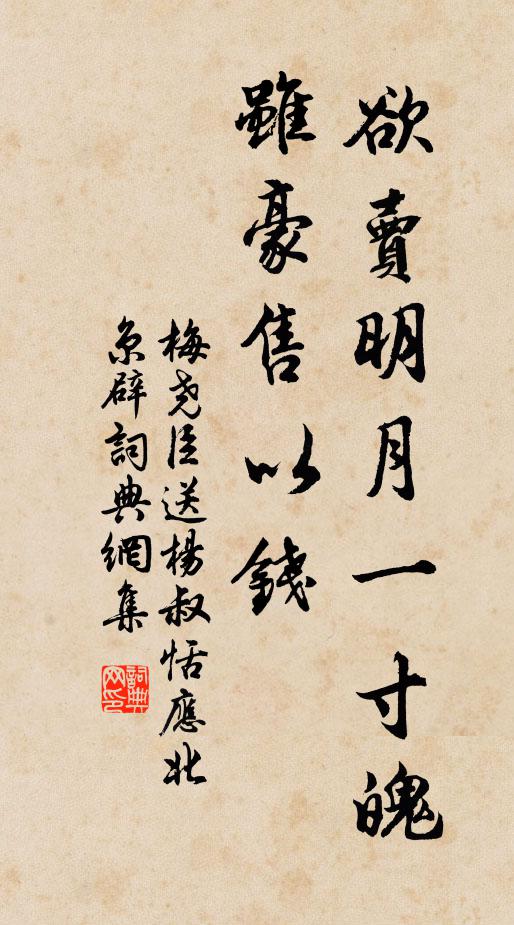 欲賣明月一寸魄
雖豪售以錢
梅堯臣送楊叔恬應北
京辟詞典網集
詞典
网印